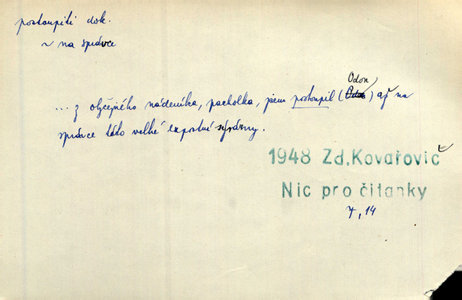 postoupiti dok.
~ na správce
Odon
... z obyčejného nádeníka, pacholka, jsem postoupil ( ) až na
správce této velké exportní výrobny.
1948 Zd. Kovařovič
Nic pro čítanky
7, 14